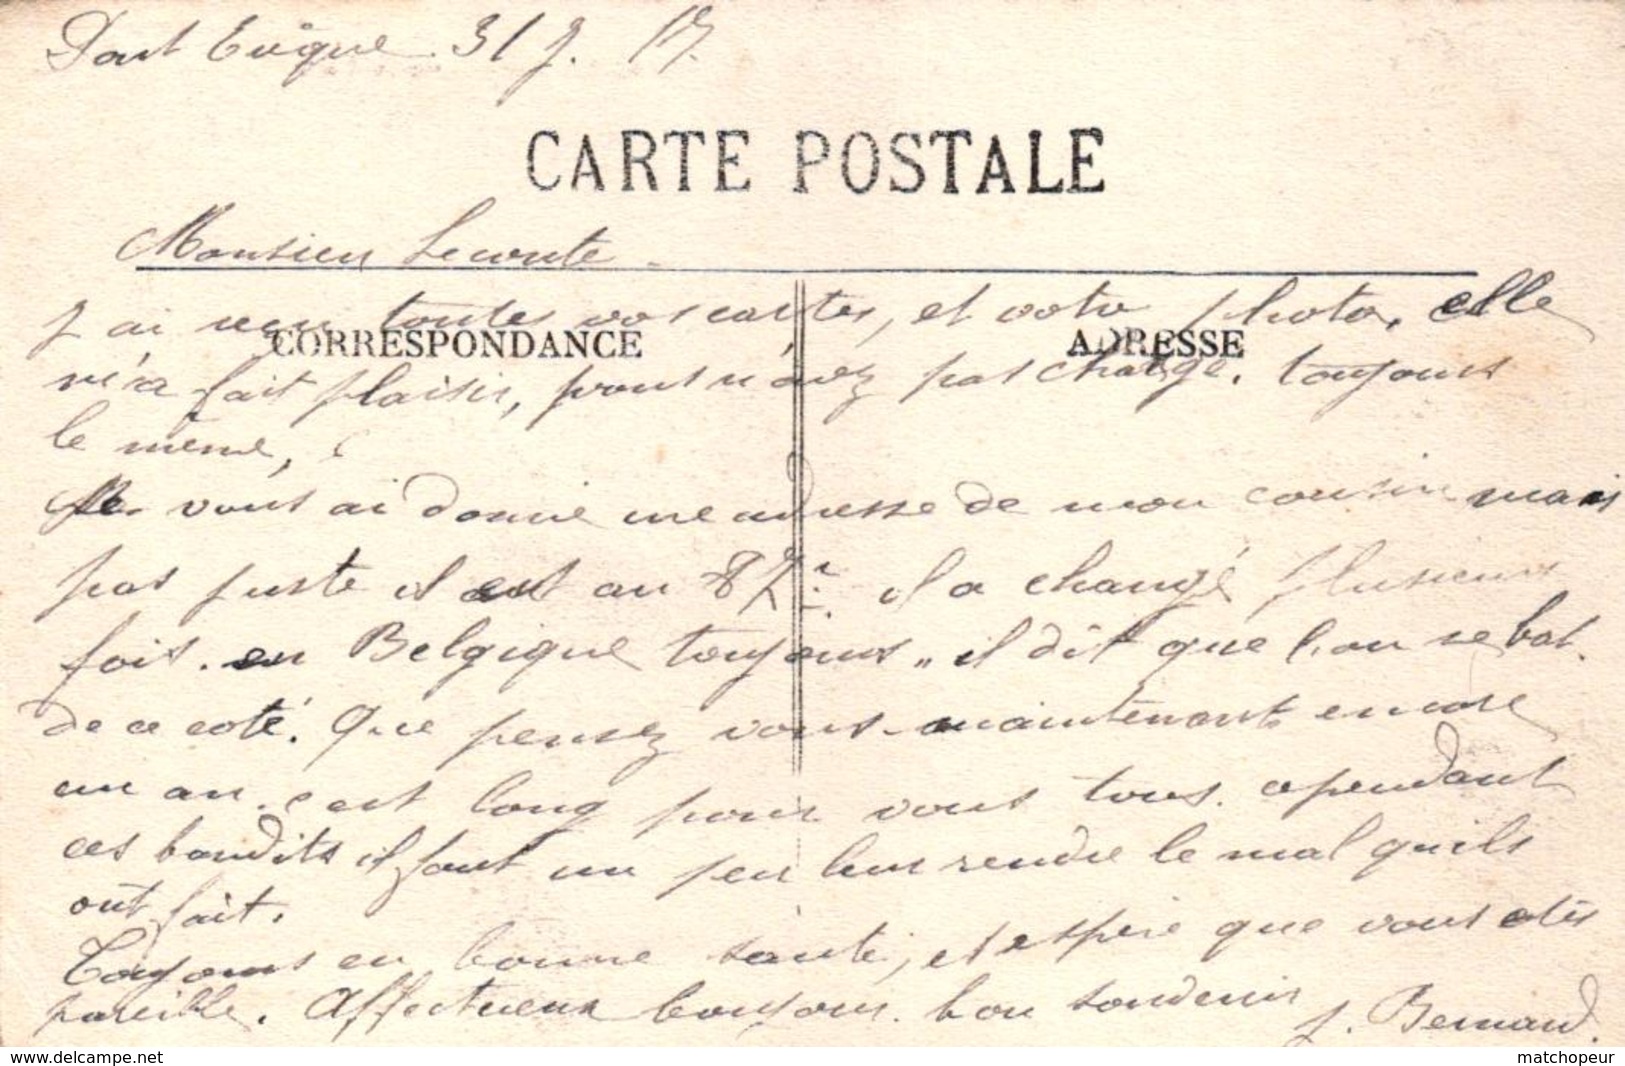 Pont Evêque 31 J. 17.
CARTE POSTALE
Monsieur Leconte
CORRESPONDANCE
ADRESSE
J ai reçu toutes vos cartes, et votre photo, elle
m'a fait plaisir, vous n'avez pas changé. toujours
le même,
Je vous ai donné une adresse de mon cousin mais
pas juste il est au 87e il a changé plusieurs
fois. en Belgique toujours,, il dit que l'on se bat
de ce coté. Que pensez vous maintenant encore
un an. c est long pour vous tous. cependant
ces bandits il faut un peu leur rendre le mal qu'ils
ont fait.
Toujours en bonne santé, et espère que vous etes
pareille. Affectueux bonjour. bon souvenir
J. Bernard.
matchopeur
www.delcampe.net